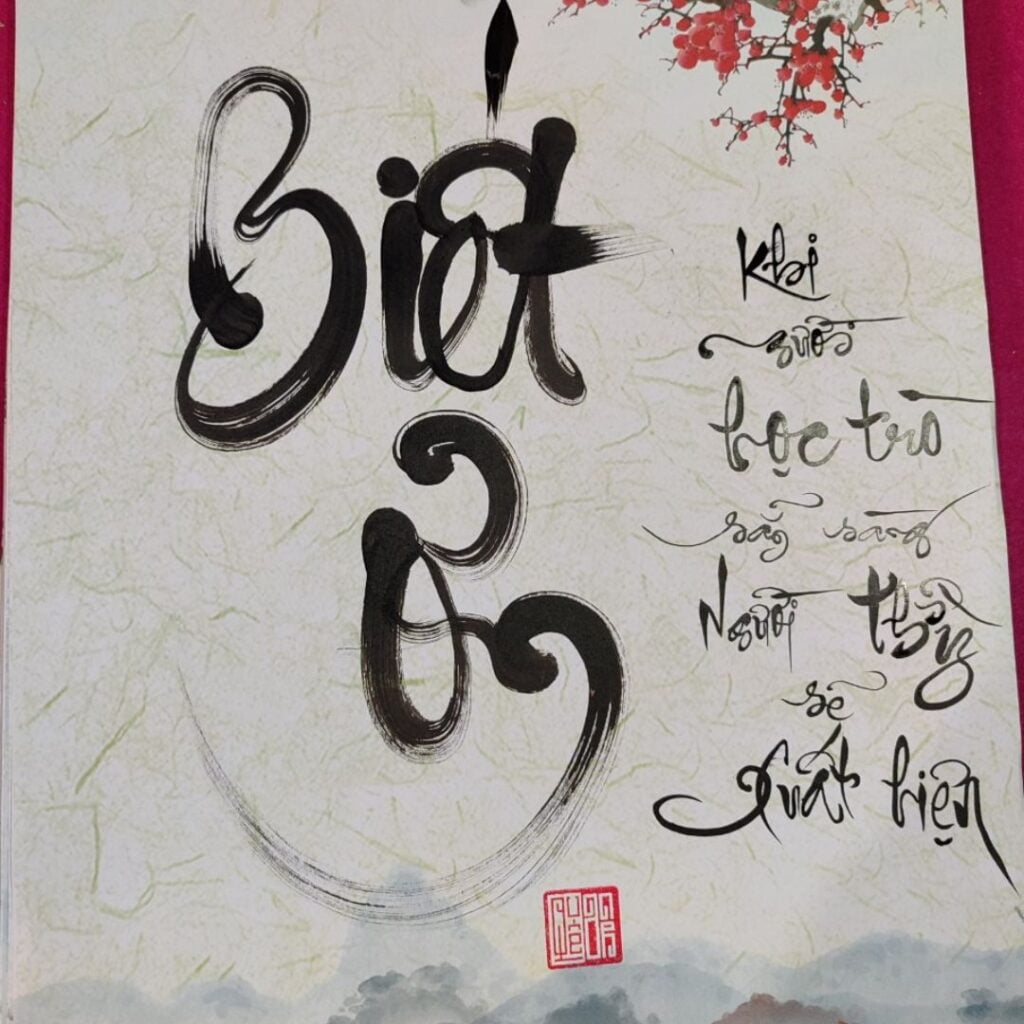 Biết
Ơn
Khi
người
học trò
sẵn sàng
Người thầy
sẽ
Xuất hiện